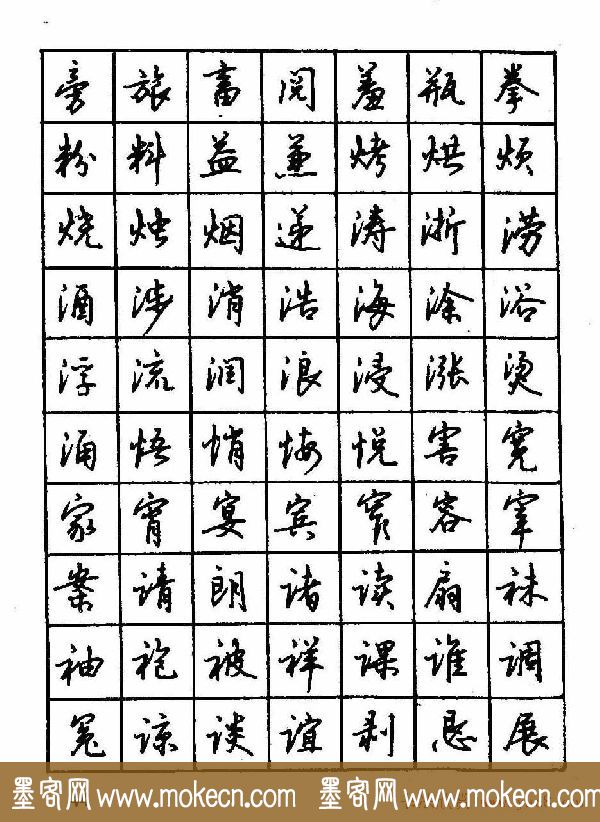 旁旅畜阅羞瓶拳
粉料益兼烤烘烦
烧烛烟递涛浙涝
酒涉消浩海涂浴
浮流润浪浸涨烫
涌悟悄悔悦害宽
家宵宴宾窄容宰
案请朗诸读扇袜
袖袍被祥课谁调
冤谅谈谊剥恳展
墨客网 www.mokecn.com 墨客网 www.mokecn.com